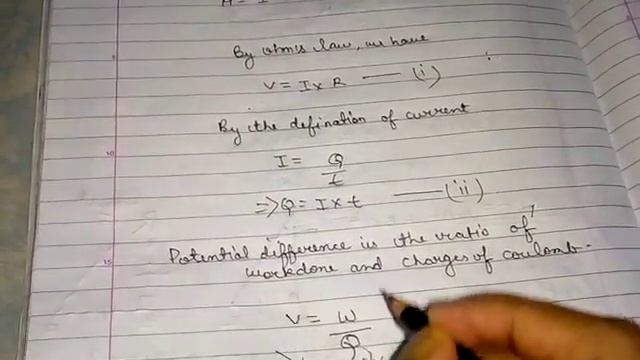 By ohm's law, we have
V = I x R —— (i)
By the defination of current
I = Q
t
=> Q = I x t —— (ii)
Potential difference is the ratio of
workdone and charges of coulomb.
V = W
Q